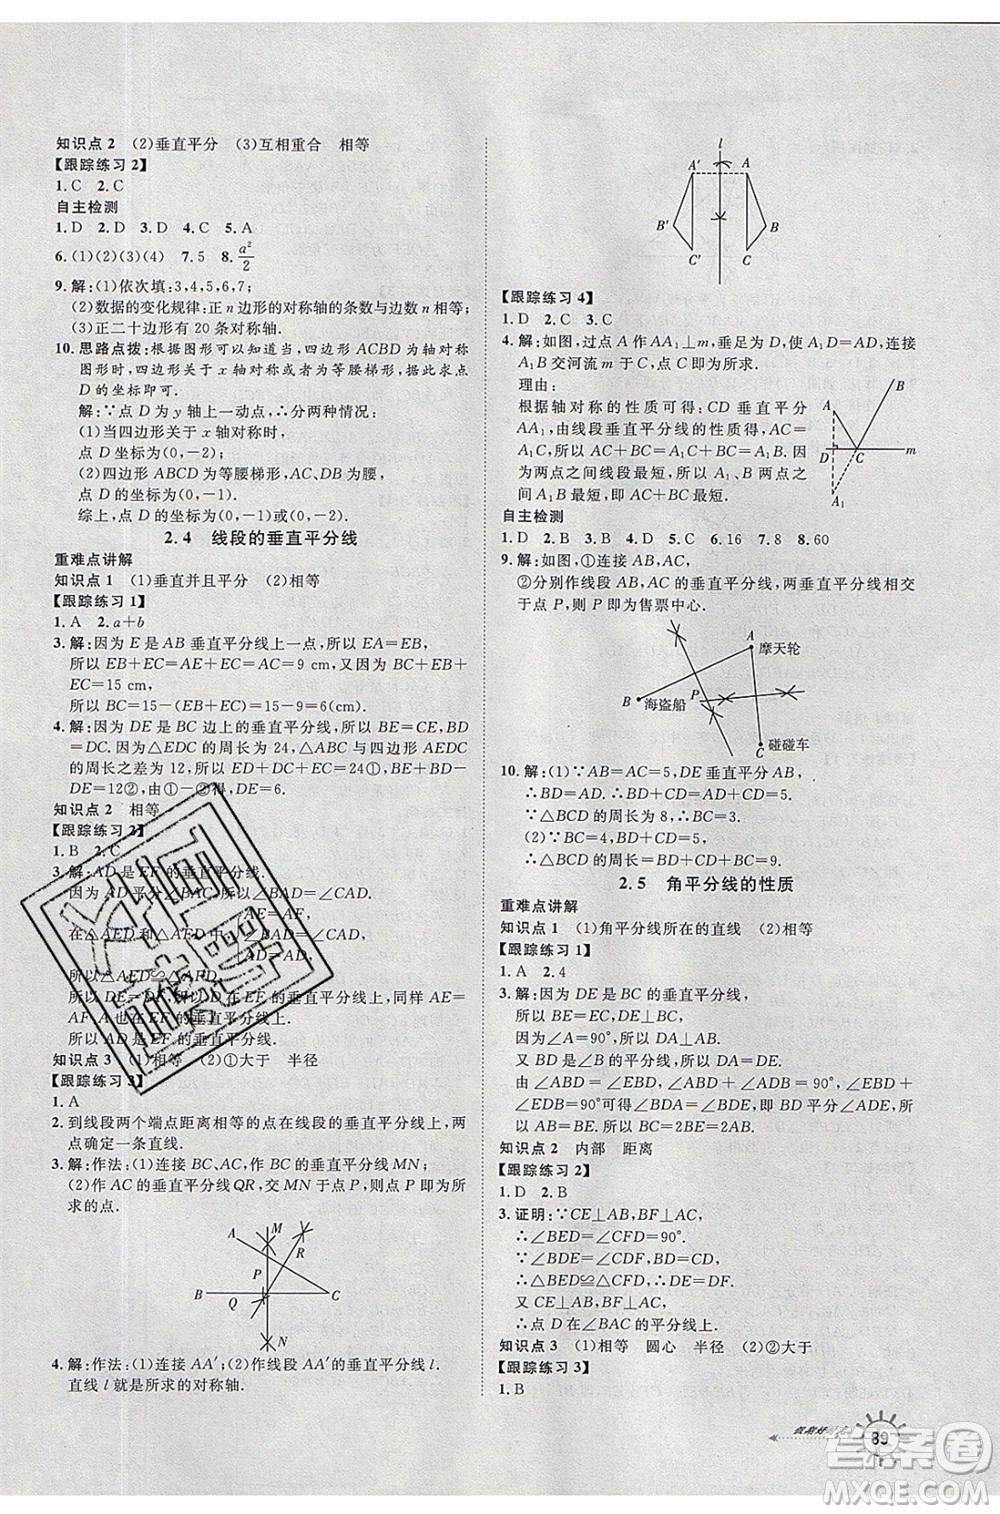 知识点2 (2)垂直平分 (3)互相重合 相等
【跟踪练习2】
1.C 2.C
自主检测
1.D 2.D 3.D 4.C 5.A
6.(1)(2)(3)(4) 7.5 8.a²/2
9.解:(1)依次填:3,4,5,6,7;
(2)数据的变化规律:正n边形的对称轴的条数与边数n相等;
(3)正二十边形有20条对称轴.
10.思路点拨:根据图形可以知道,当四边形ACBD为轴对称
图形时,四边形是关于x轴对称或者是等腰梯形,从而求点
D的坐标即可.
解:∵点D为y轴上一动点,∴分两种情况:
(1)当四边形关于x轴对称时,
点D的坐标为(0,-2);
(2)当四边形ABCD为等腰梯形,AC、BD为腰,
点D的坐标为(0,-1).
综上,点D的坐标为(0,-2)或(0,-1).
2.4 线段的垂直平分线
重难点讲解
知识点1 (1)垂直并且平分 (2)相等
【跟踪练习1】
1.A 2.a+b
3.解:因为E是AB垂直平分线上一点,所以EA=EB,
所以EB+EC=AE+EC=AC=9 cm,又因为BC+EB+
EC=15 cm,
所以BC=15-(EB+EC)=15-9=6(cm).
4.解:因为DE是BC边上的垂直平分线,所以BE=CE,BD
=DC.因为△EDC的周长为24,△ABC与四边形AEDC
的周长之差为12,所以BE+BD+DE=24①,BE+BD-
DE=12②.由①-②得,DE=6.
知识点2 相等
【跟踪练习2】
1.B 2.C
3.解:AD是EF的垂直平分线.
因为AD是△ABC的角平分线,所以∠BAD=∠CAD.
AE=AF,
在△AED和△AFD中,∠BAD=∠CAD,
AD=AD,
所以△AED≌△AFD(SAS).
所以DE=DF,所以D在EF的垂直平分线上,同样AE=
AF,A点也在EF的垂直平分线上.
所以AD是EF的垂直平分线.
知识点3 (1)相等 (2)①大于 半径
【跟踪练习3】
1.A
2.到线段两个端点距离相等的点在线段的垂直平分线上,两
点确定一条直线.
3.解:作法:(1)连接BC、AC,作BC的垂直平分线MN;
(2)作AC的垂直平分线QR,交MN于点P,则点P即为所
求的点.
A M R P B Q C N
4.解:作法:(1)连接AA′;(2)作线段AA′的垂直平分线l.
直线l就是所求的对称轴.
l
A′ A
B′ B
C′ C
【跟踪练习4】
1.D 2.C 3.C
4.解:如图,过点A作AA₁⊥m,垂足为D,且AD=A₁D,连接
A₁B交河流m于点C,点C即为所求.
理由:
根据轴对称的性质可得:CD垂直平分
AA₁,由线段垂直平分线的性质得,AC=
A₁C,所以AC+BC=A₁C+BC=A₁B.因
为两点之间线段最短,所以A₁、B两点的
A₁B最短,即AC+BC最短.
B A D C m A₁
自主检测
1.D 2.C 3.D 4.D 5.D 6.16 7.8 8.60
9.解:如图,①连接AB,AC,
②分别作线段AB,AC的垂直平分线,两垂直平分线相交
于点P,则P即为售票中心.
A 摩天轮
B 海盗船 P
C 碰碰车
10.解:(1)∵AB=AC=5,DE垂直平分AB,
∴BD=AD.∴BD+CD=AD+CD=5.
∵△BCD的周长为8,∴BC=3.
(2)∵BC=4,BD+CD=5,
∴△BCD的周长=BD+CD+BC=9.
2.5 角平分线的性质
重难点讲解
知识点1 (1)角平分线所在的直线 (2)相等
【跟踪练习1】
1.A 2.4
3.解:因为DE是BC的垂直平分线,
所以BE=EC,DE⊥BC,
因为∠A=90°,所以DA⊥AB.
又因为BD是∠ABC的平分线,所以DA=DE.
又由∠ABD=∠EBD,∠ADB=90°-∠ABD,
∠EDB=90°-∠EBD得∠ADB=∠EDB.
由角平分线的性质可得BA⊥AD,BE⊥DE,即BD平分
∠ADE,所以AB=BE.
知识点2 内部 距离
【跟踪练习2】
1.D 2.B
3.证明:∵CE⊥AB,BF⊥AC,
∴∠BED=∠CFD=90°.
∵∠BDE=∠CDF,BD=CD,
∴△BED≌△CFD,∴DE=DF.
又∵CE⊥AB,BF⊥AC,
∴点D在∠BAC的平分线上.
知识点3 (1)相等 圆心 半径 (2)②大于
【跟踪练习3】
1.B
89
答案圈